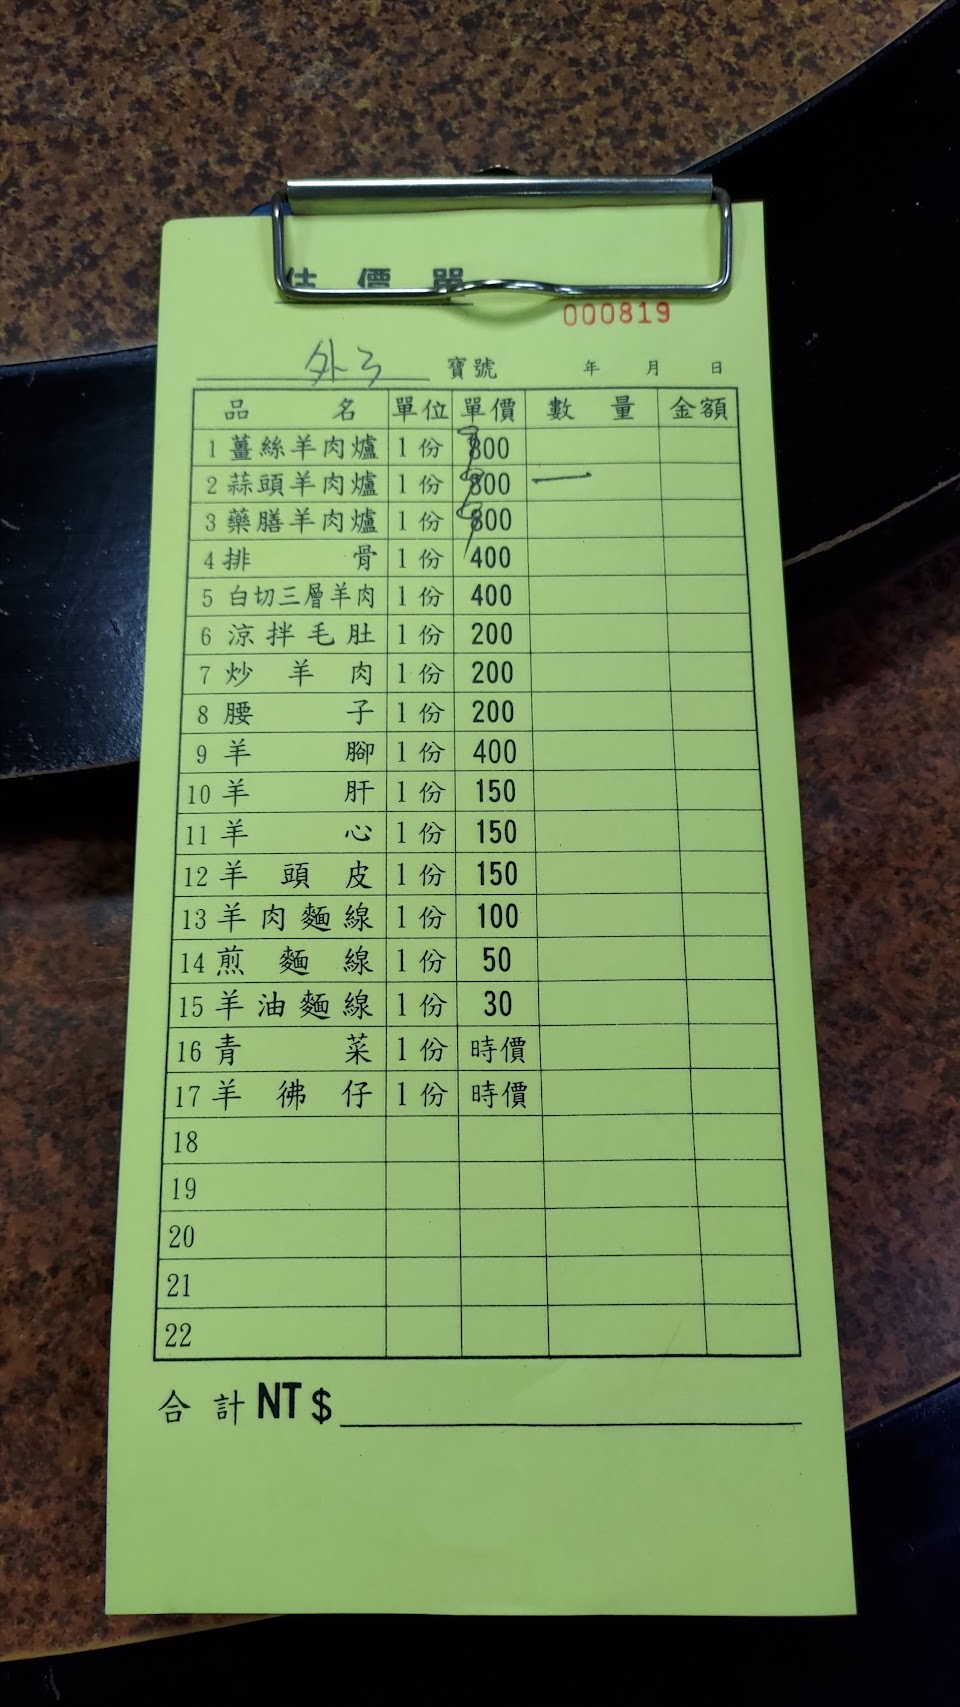 估價單
000819
外3 寶號 年 月 日
品名 單位 單價 數量 金額
1 薑絲羊肉爐 1份 800
2 蒜頭羊肉爐 1份 800 一
3 藥膳羊肉爐 1份 800
4 排骨 1份 400
5 白切三層羊肉 1份 400
6 涼拌毛肚 1份 200
7 炒羊肉 1份 200
8 腰子 1份 200
9 羊腳 1份 400
10 羊肝 1份 150
11 羊心 1份 150
12 羊頭皮 1份 150
13 羊肉麵線 1份 100
14 煎麵線 1份 50
15 羊油麵線 1份 30
16 青菜 1份 時價
17 羊彿仔 1份 時價
18
19
20
21
22
合計NT$